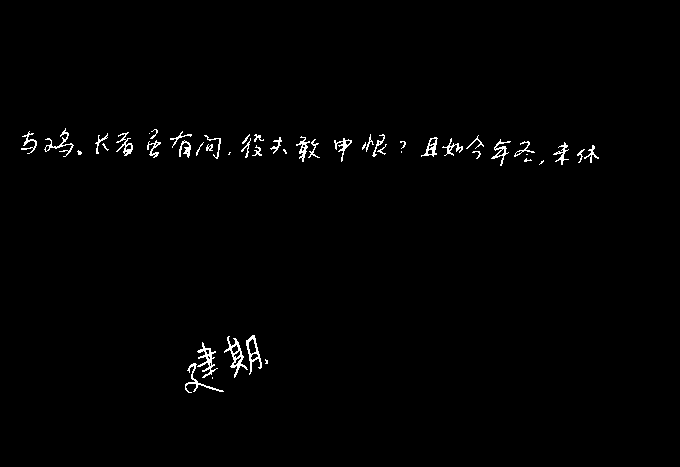 与鸡。长者虽有问,役夫敢申恨?且如今年冬,未休
建期